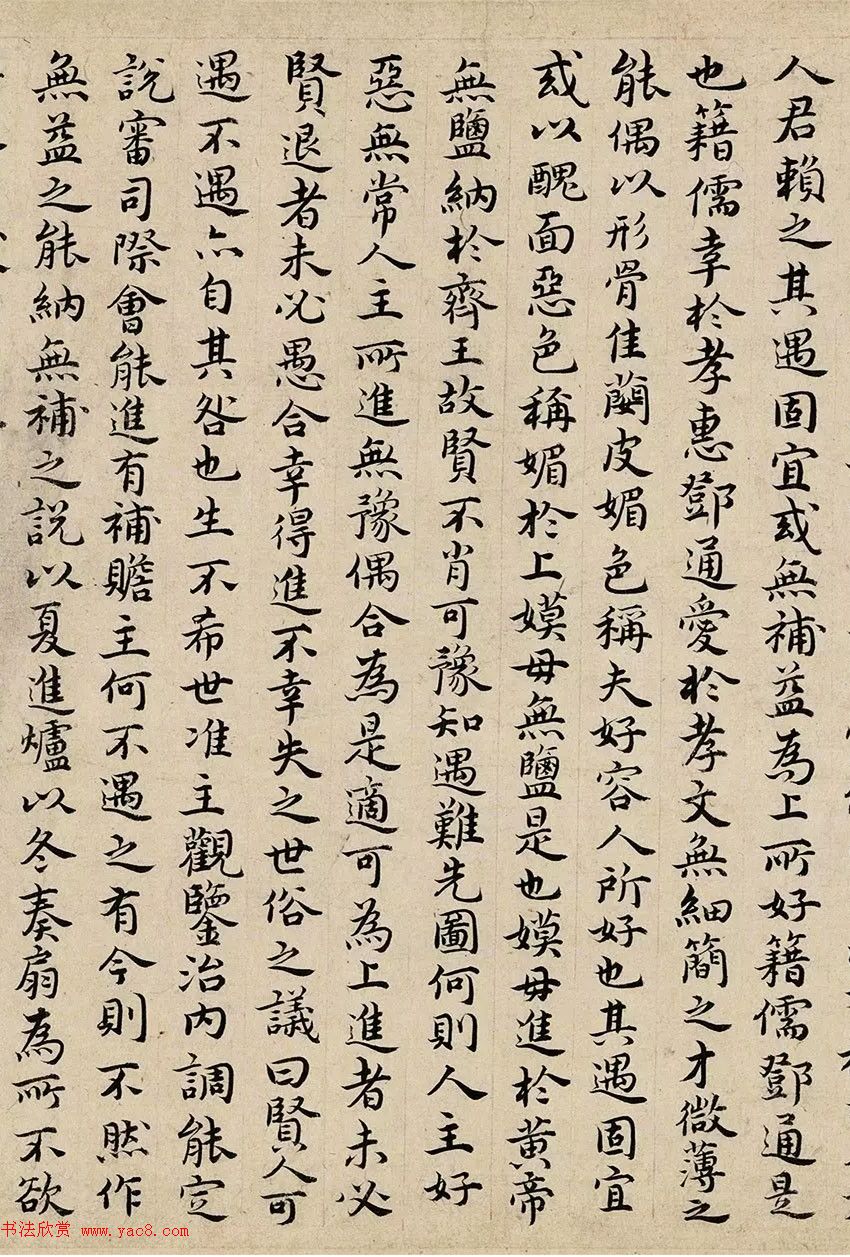 人君賴之其遇固宜或無補益為上所好籍儒鄧通是
也籍儒幸於孝惠鄧通愛於孝文無細簡之才微薄之
能偶以形骨佳蘭皮媚色稱夫好容人所好也其遇固宜
或以醜面惡色稱媚於上嫫母無鹽是也嫫母進於黃帝
無鹽納於齊王故賢不肖可豫知遇難先圖何則人主好
惡無常人主所進無豫偶合為是適可為上進者未必
賢退者未必愚合幸得進不幸失之世俗之議曰賢人可
遇不遇亦自其咎也生不希世准主觀鑒治內調能定
說審司際會能進有補贍主何不遇之有今則不然作
無益之能納無補之說以夏進爐以冬奏扇為所不欲
书法欣赏 www.yac8.com